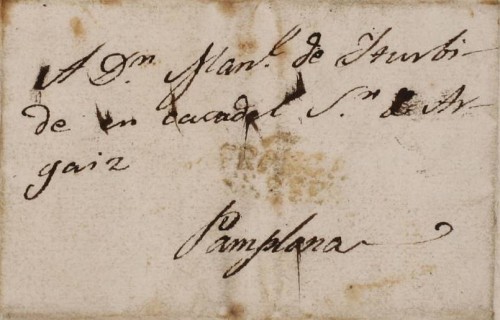 A Dn. Manl. de Yturbi-
de en cacadel Sr. de Ar-
gaiz
Pamplona